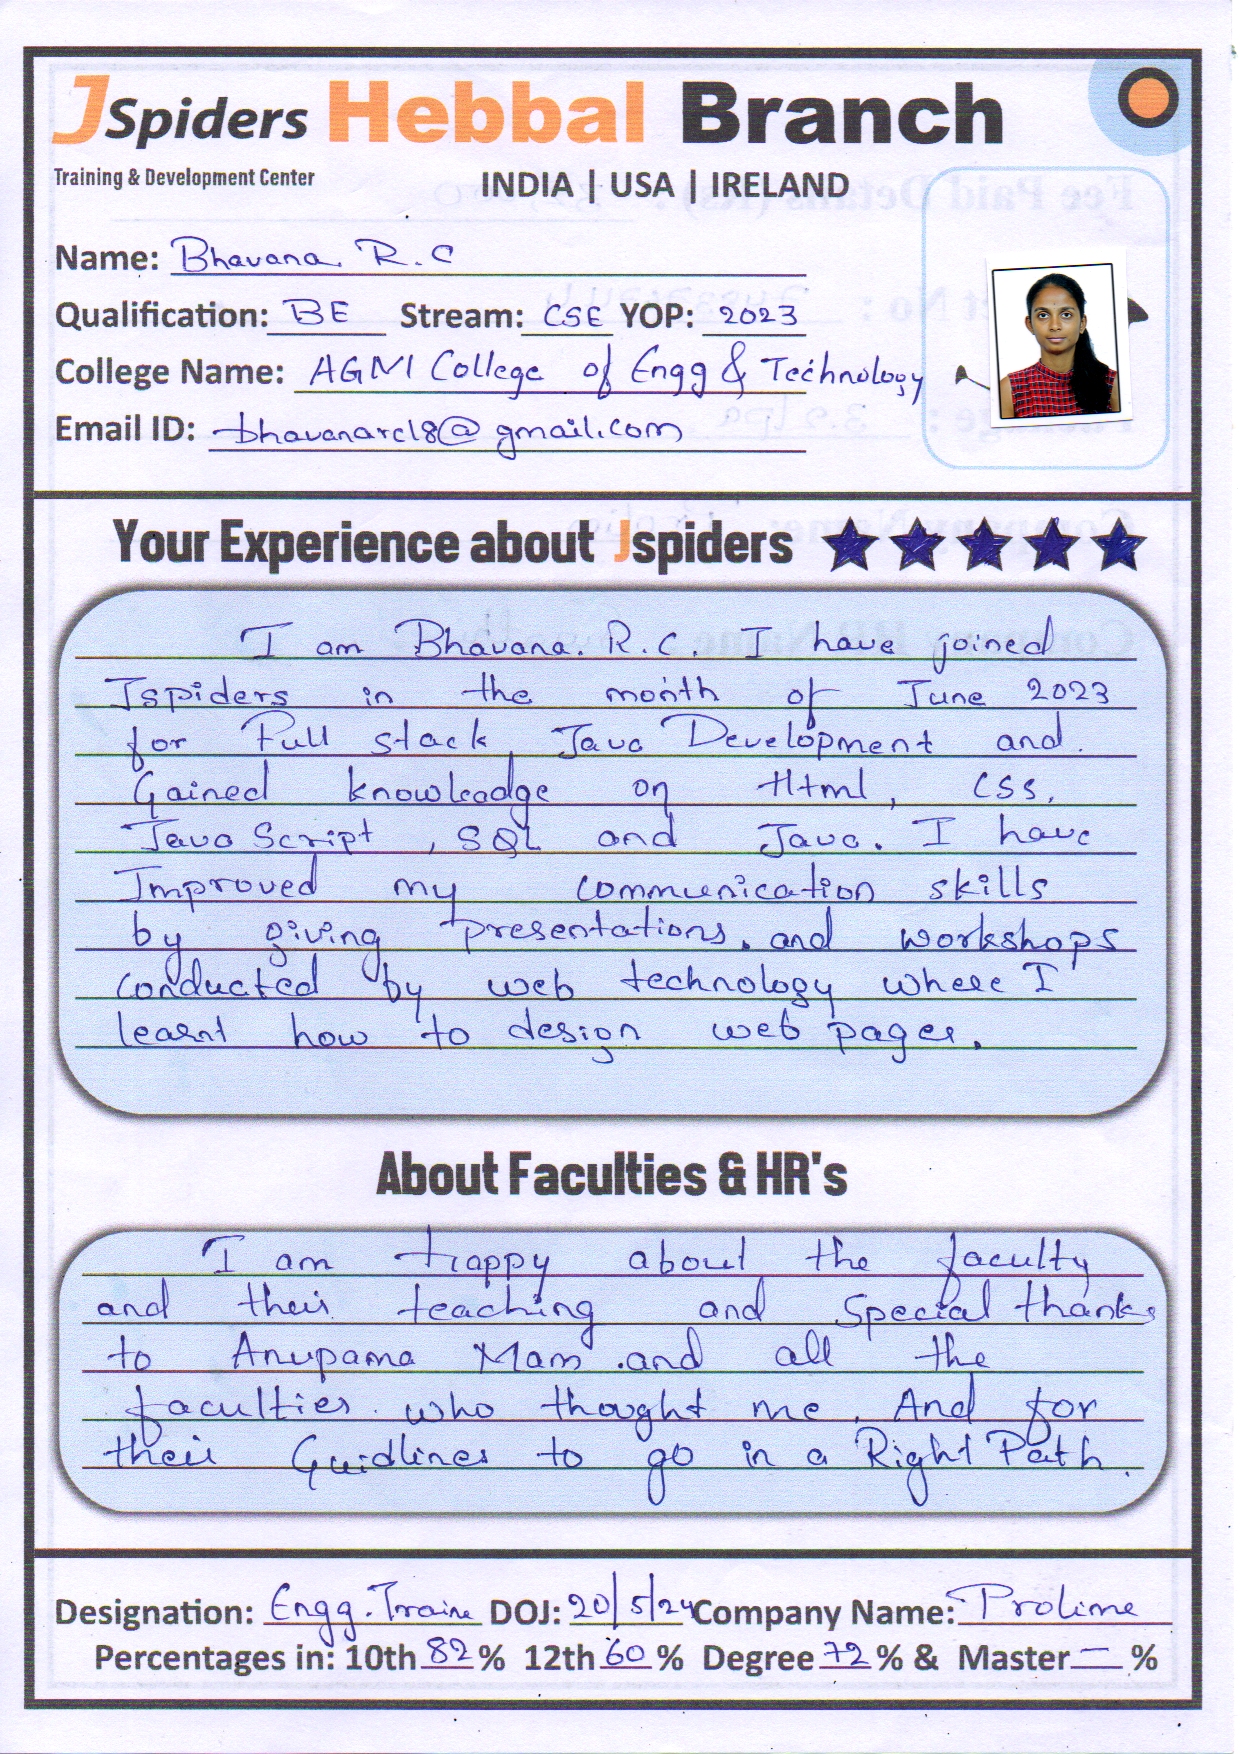 JSpiders Hebbal Branch
Training & Development Center
INDIA | USA | IRELAND
Name: Bhavana R.C
Qualification: BE Stream: CSE YOP: 2023
College Name: AGM College of Engg & Technology
Email ID: bhavanarc18@gmail.com
Your Experience about Jspiders
I am Bhavana. R.C. I have joined
Jspiders in the month of June 2023
for Full stack Java Development and
Gained knowleadge on Html, CSS,
Java Script, SQL and Java. I have
Improved my communication skills
by giving presentations. and workshops
conducted by web technology where I
learnt how to design web pages.
About Faculties & HR's
I am happy about the faculty
and their teaching and Special thanks
to Anupama Mam .and all the
faculties who thought me. And for
their Guidlines to go in a Right Path.
Designation: Engg.Traine DOJ: 20/5/24 Company Name: Prolime
Percentages in: 10th 82 % 12th 60 % Degree 72 % & Master — %